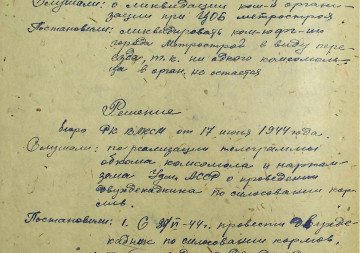 Слушали: о ликвидации ком-й органи-
зации при УОБ метростроя
Постановили: ликвидировать ком-
города Метрострой в виду пере-
езда, т.к. ни одного комсомоль-
ца в орган. не остается
Решение
бюро РК ВЛКСМ от 17 июня 1944 года.
Слушали: по реализации телеграммы
обкома комсомола и нарком-
зема Удм. АССР о проведении
двухдекадника по силосованию кор-
мов.
Постановили: 1. С VI-44г. провести двухде-
кадник по силосованию кормов,